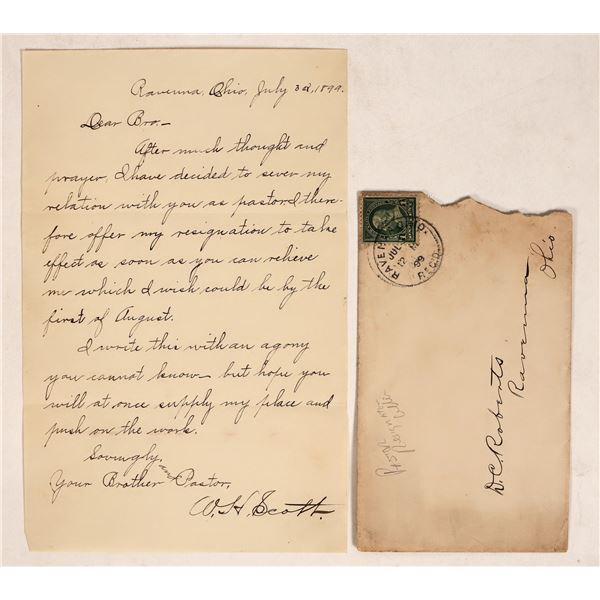 Ravenna, Ohio, July 3d, 1899.
Dear Bro:-
After much thought and
prayer, I have decided to sever my
relation with you as pastor & there-
fore offer my resignation to take
effect as soon as you can relieve
me which I wish could be by the
first of August.
I write this with an agony
you cannot know but hope you
will at once supply my place and
push on the work.
Lovingly,
Your Brother and Pastor,
W. H. Scott.
RAVENNA O.
JUL
12
99
REC'D.
D. C. Roberts
Ravenna
Ohio.